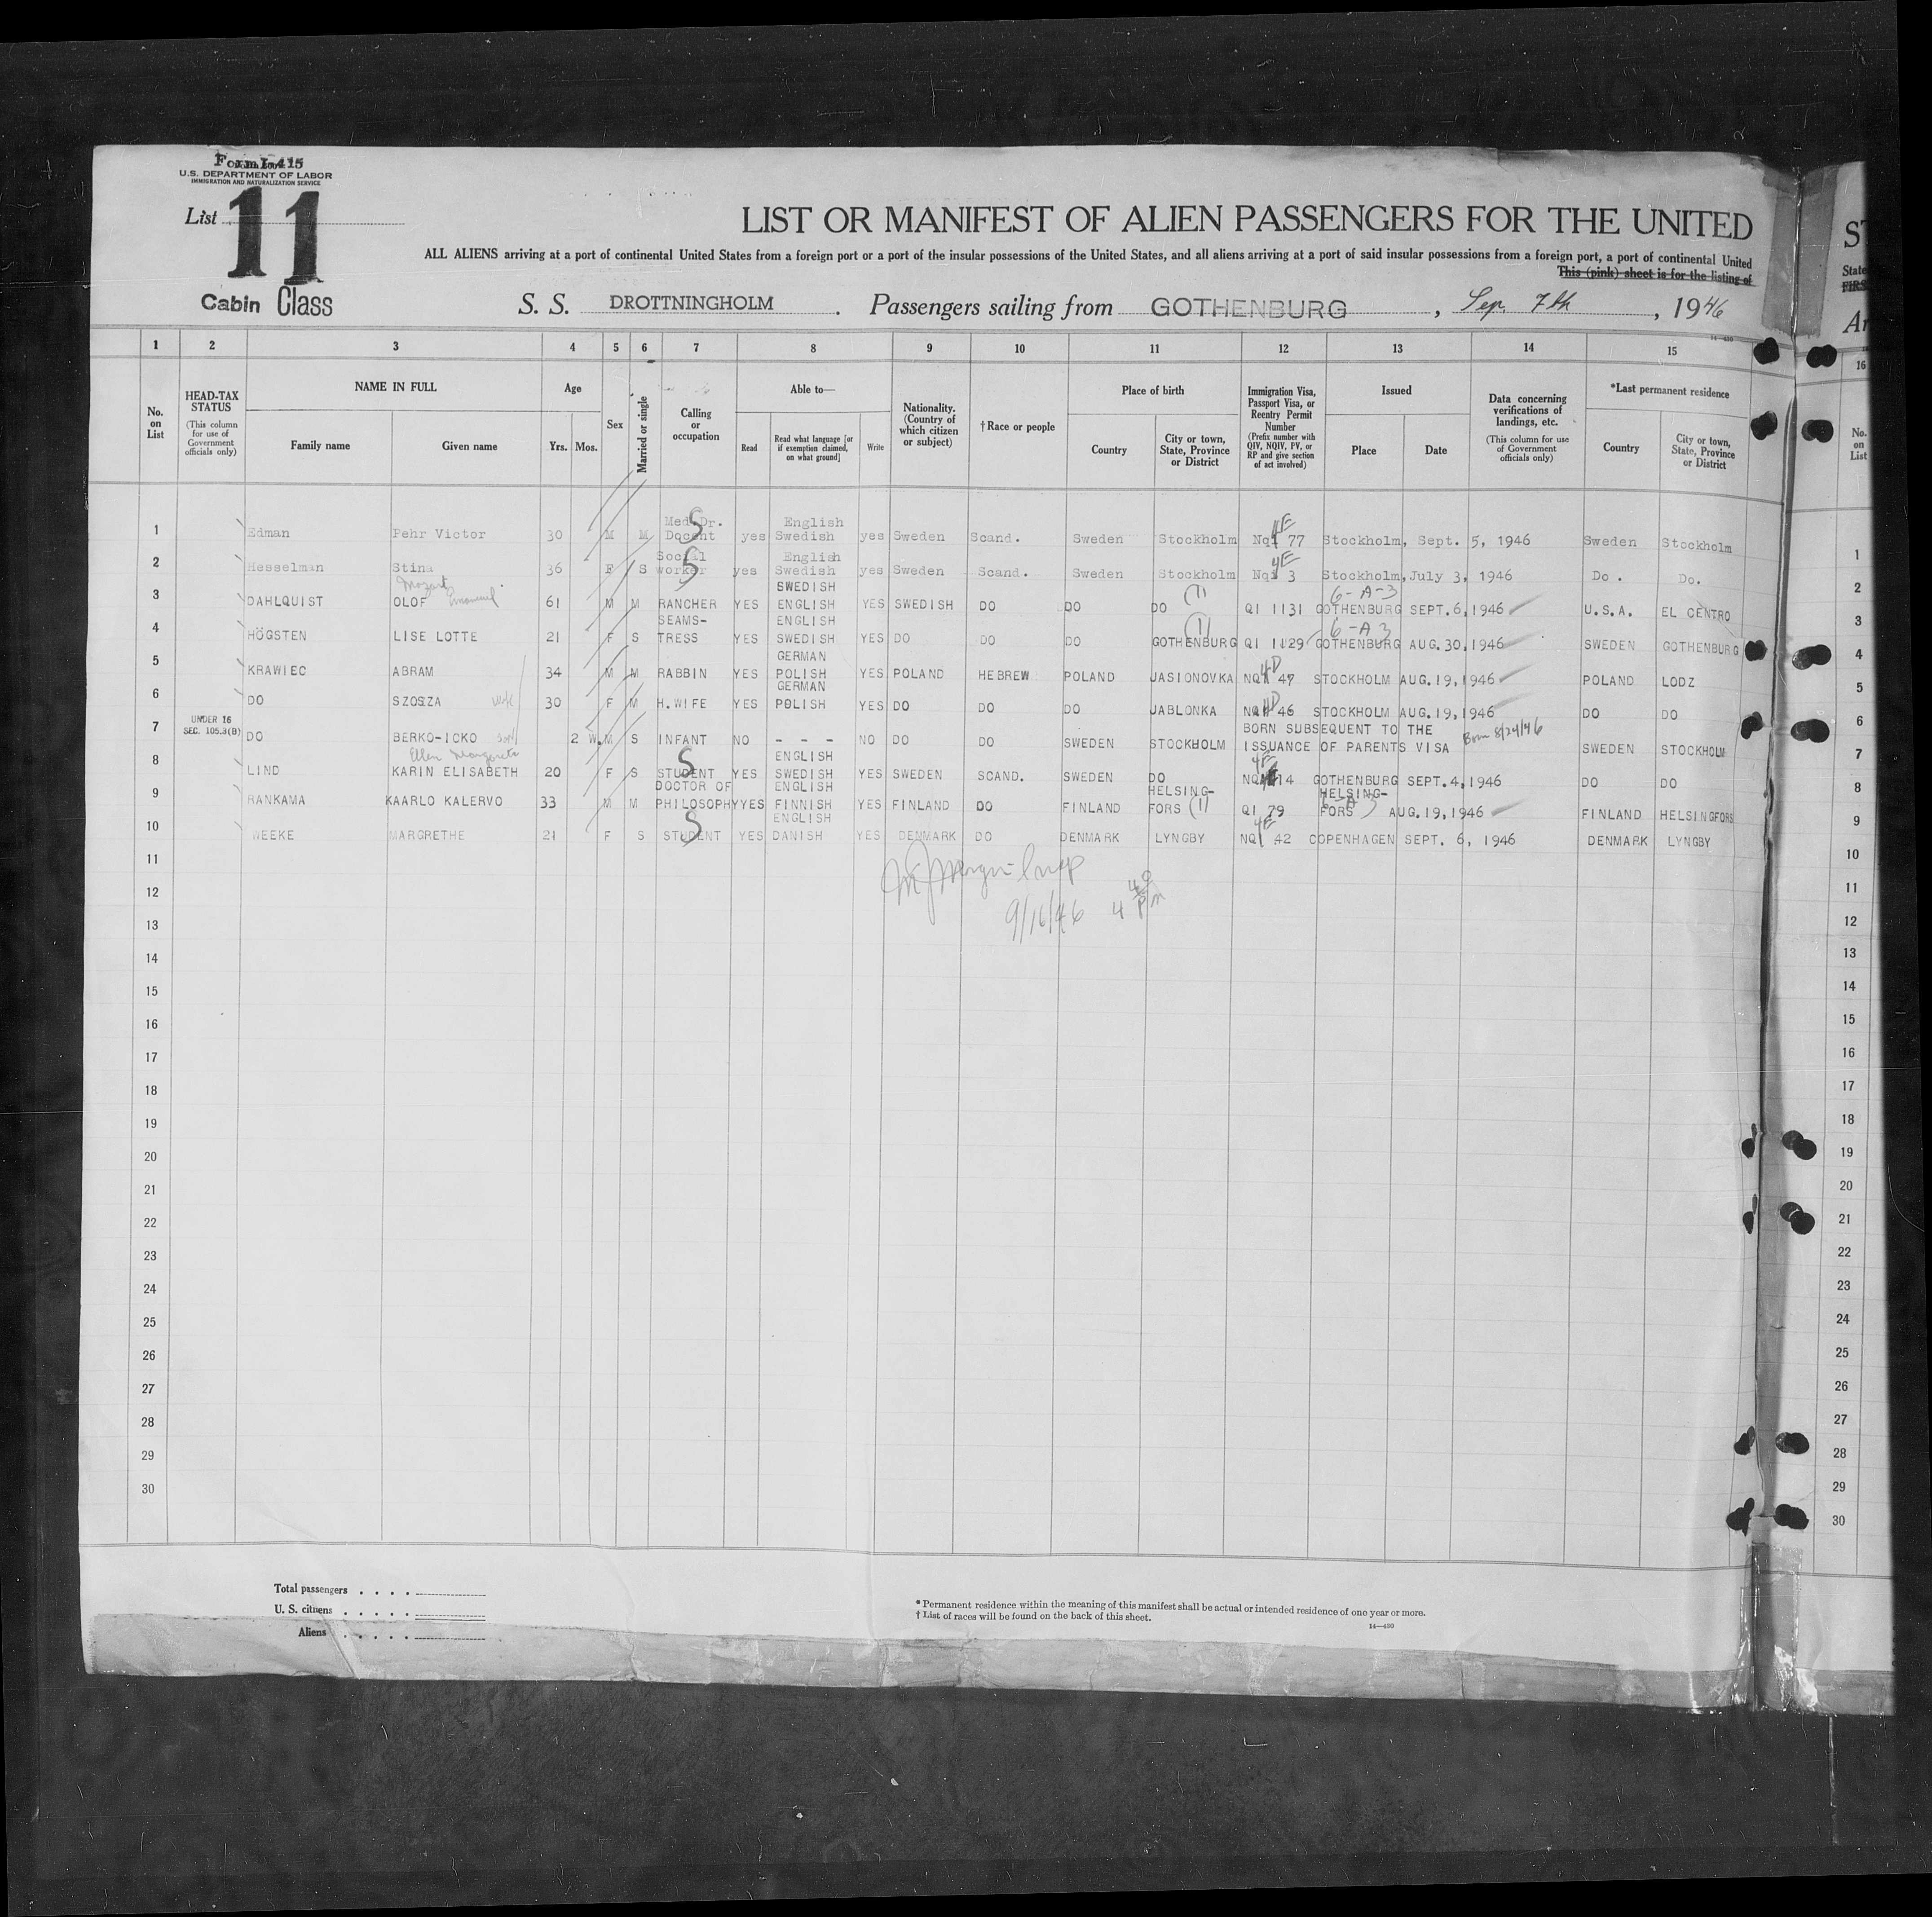 Form I-415
U.S. DEPARTMENT OF LABOR
IMMIGRATION AND NATURALIZATION SERVICE
List 11
LIST OR MANIFEST OF ALIEN PASSENGERS FOR THE UNITED
ALL ALIENS arriving at a port of continental United States from a foreign port or a port of the insular possessions of the United States, and all aliens arriving at a port of said insular possessions from a foreign port, a port of continental United
This (pink) sheet is for the listing of
Cabin Class S. S. DROTTNINGHOLM . Passengers sailing from GOTHENBURG , Sep. 7th , 1946
1 2 3 4 5 6 7 8 9 10 11 12 13 14 15
No. on List
HEAD-TAX STATUS (This column for use of Government officials only)
NAME IN FULL
Family name Given name
Age
Yrs. Mos.
Sex
Married or single
Calling or occupation
Able to—
Read Read what language [or if exemption claimed, on what ground] Write
Nationality. (Country of which citizen or subject)
†Race or people
Place of birth
Country City or town, State, Province or District
Immigration Visa, Passport Visa, or Reentry Permit Number (Prefix number with QIV, NQIV, PV, or RP and give section of act involved)
Issued
Place Date
Data concerning verifications of landings, etc. (This column for use of Government officials only)
*Last permanent residence
Country City or town, State, Province or District
1 Edman Pehr Victor 30 M M Med. Dr. Docent S yes English Swedish yes Sweden Scand. Sweden Stockholm Nqi 77 4E Stockholm, Sept. 5, 1946 Sweden Stockholm
2 Hesselman Stina 36 F S Social worker S yes English Swedish yes Sweden Scand. Sweden Stockholm Nqi 3 4E Stockholm, July 3, 1946 Do. Do.
3 DAHLQUIST OLOF Mozart Emanuel 61 M M RANCHER YES SWEDISH ENGLISH YES SWEDISH DO DO DO (1) QI 1131 6-A-3 GOTHENBURG SEPT. 6, 1946 U.S.A. EL CENTRO
4 HÖGSTEN LISE LOTTE 21 F S SEAMS-TRESS YES ENGLISH SWEDISH YES DO DO DO GOTHENBURG (1) QI 1129 6-A 3 GOTHENBURG AUG. 30, 1946 SWEDEN GOTHENBURG
5 KRAWIEC ABRAM 34 M M RABBIN YES GERMAN POLISH YES POLAND HEBREW POLAND JASIONOVKA NQI 47 4D STOCKHOLM AUG. 19, 1946 POLAND LODZ
6 DO SZOSZA wife 30 F M H. WIFE YES GERMAN POLISH YES DO DO DO JABLONKA NQI 46 4D STOCKHOLM AUG. 19, 1946 DO DO
7 UNDER 16 SEC. 105.3(B) DO BERKO-ICKO son 2 W. M S INFANT NO - - - NO DO DO SWEDEN STOCKHOLM BORN SUBSEQUENT TO THE ISSUANCE OF PARENTS VISA Born 8/24/46 SWEDEN STOCKHOLM
8 LIND KARIN ELISABETH Ellen Margareta 20 F S STUDENT S YES ENGLISH SWEDISH YES SWEDEN SCAND. SWEDEN DO NQI 14 4E GOTHENBURG SEPT. 4, 1946 DO DO
9 RANKAMA KAARLO KALERVO 33 M M DOCTOR OF PHILOSOPHY YES ENGLISH FINNISH YES FINLAND DO FINLAND HELSING-FORS (1) QI 79 HELSING-FORS 6-A 3 AUG. 19, 1946 FINLAND HELSINGFORS
10 WEEKE MARGRETHE 21 F S STUDENT S YES ENGLISH DANISH YES DENMARK DO DENMARK LYNGBY NQI 42 4E COPENHAGEN SEPT. 6, 1946 DENMARK LYNGBY
9/16/46 4 40 PM
11
12
13
14
15
16
17
18
19
20
21
22
23
24
25
26
27
28
29
30
Total passengers . . . .
U. S. citizens . . . . .
Aliens . . . . .
* Permanent residence within the meaning of this manifest shall be actual or intended residence of one year or more.
† List of races will be found on the back of this sheet.
14—430
ST
State
FIRS
Ar
16
No. on List
1
2
3
4
5
6
7
8
9
10
11
12
13
14
15
16
17
18
19
20
21
22
23
24
25
26
27
28
29
30